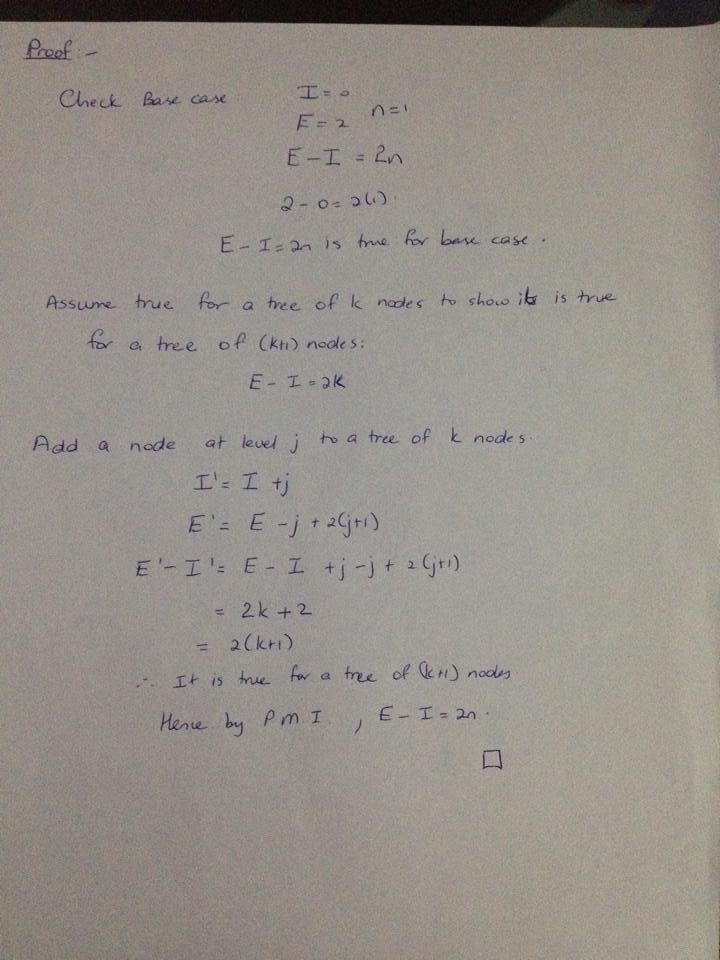 Proof :-
Check Base case I = 0
E = 2 n = 1
E - I = 2n
2 - 0 = 2(1).
E - I = 2n is true for base case.
Assume true for a tree of k nodes to show it is true
for a tree of (k+1) nodes:
E - I = 2k
Add a node at level j to a tree of k nodes.
I' = I + j
E' = E - j + 2(j+1)
E' - I' = E - I + j - j + 2(j+1)
= 2k + 2
= 2(k+1)
∴ It is true for a tree of (k+1) nodes
Hence by P M I , E - I = 2n.
□